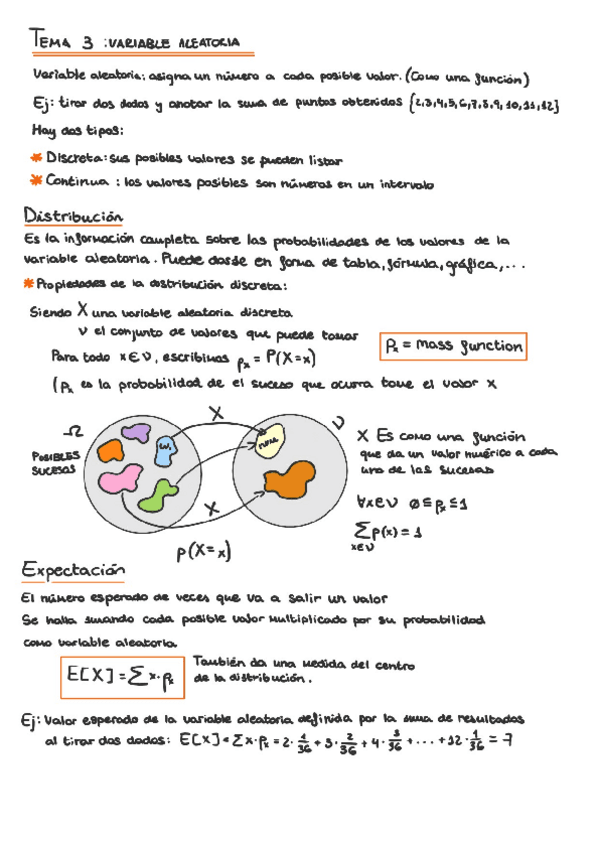 TEMA 3 : VARIABLE ALEATORIA
Variable aleatoria: asigna un número a cada posible valor. (Como una función)
Ej: tirar dos dados y anotar la suma de puntos obtenidos {2,3,4,5,6,7,8,9,10,11,12}
Hay dos tipos:
* Discreta: sus posibles valores se pueden listar
* Continua : los valores posibles son números en un intervalo
Distribución
Es la información completa sobre las probabilidades de los valores de la
variable aleatoria. Puede darse en forma de tabla, fórmula, gráfica,...
* Propiedades de la distribución discreta:
Siendo X una variable aleatoria discreta
V el conjunto de valores que puede tomar
Para todo x∈V, escribimos pₓ = P(X=x)
pₓ = mass function
(pₓ es la probabilidad de el suceso que ocurra tome el valor x
X
Ω
V
POSIBLES
SUCESOS
X Es como una función
que da un valor numérico a cada
uno de los sucesos
∀x∈V 0≤pₓ≤1
X
∑p(x)=1
x∈V
p(X=x)
Expectación
El número esperado de veces que va a salir un valor
Se halla sumando cada posible valor multiplicado por su probabilidad
como variable aleatoria.
E[X]=∑x·pₓ
También da una medida del centro
de la distribución.
Ej: Valor esperado de la variable aleatoria definida por la suma de resultados
al tirar dos dados: E[X]=∑x·pₓ=2·1/36+3·2/36+4·3/36+...+12·1/36=7